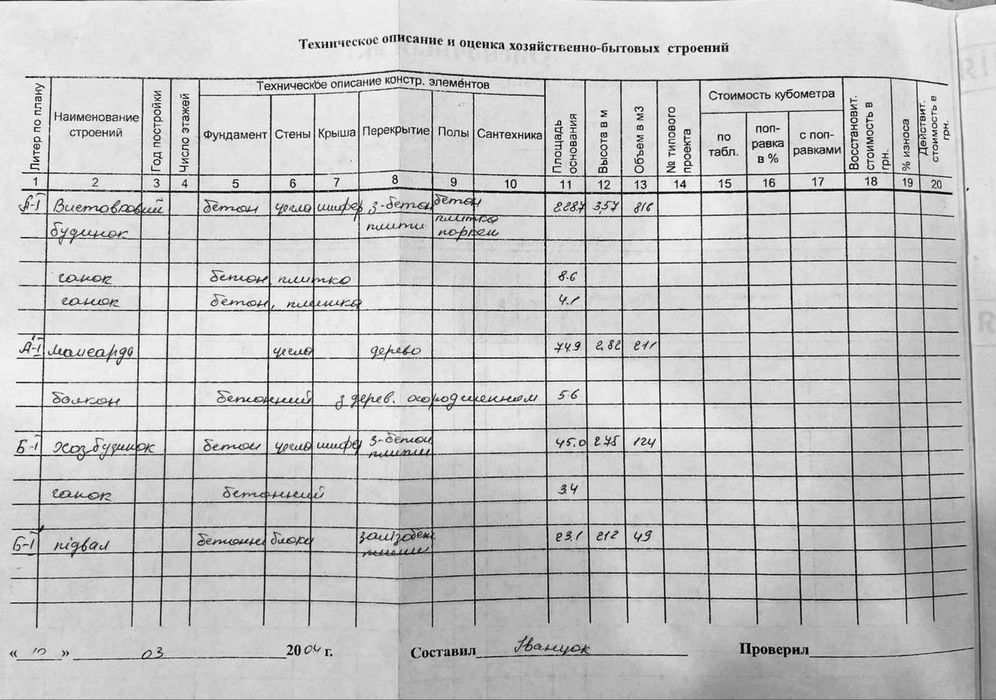 Техническое описание и оценка хозяйственно-бытовых строений
Литер по плану
Наименование строений
Год постройки
Число этажей
Техническое описание констр. элементов
Фундамент Стены Крыша Перекрытие Полы Сантехника
Площадь основания
Высота в м
Объем в м3
№ типового проекта
Стоимость кубометра
по табл.
поправка в %
с поправками
Восстановит. стоимость в грн.
% износа
Действит. стоимость в грн.
1 2 3 4 5 6 7 8 9 10 11 12 13 14 15 16 17 18 19 20
бетон цегла шифер з-бетон бетон 228.7 3,57 816
будинок плити плитка паркет
ганок бетон, плитка 8.6
ганок бетон, плитка 4.1
А-I мансарда цегла дерево 74.9 2,82 211
балкон бетонний з дерев. 5.6
Б-I Хоз.будинок бетон цегла шифер з-бетон 45.0 2.75 124
плити
ганок бетонний 3.4
Б-I підвал бетонні блоки 23,1 2.12 49
« 10 » 03 2004 г. Составил Іванцок Проверил